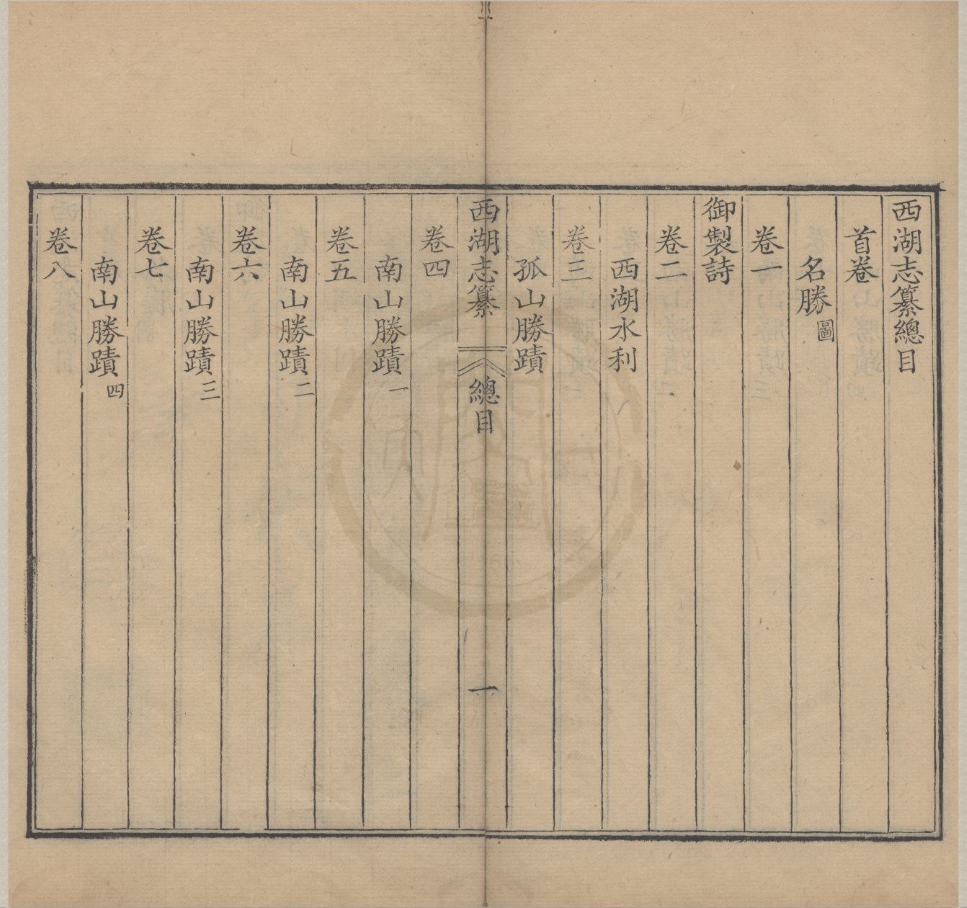 西湖志纂總目
首卷
名勝圖
卷一
御製詩
卷二
西湖水利
卷三
孤山勝蹟
西湖志纂 總目 一
卷四
南山勝蹟一
卷五
南山勝蹟二
卷六
南山勝蹟三
卷七
南山勝蹟四
卷八